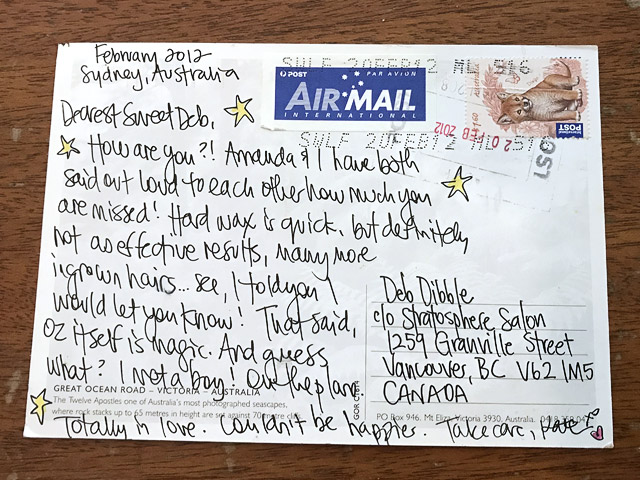 February 2012
Sydney, Australia
SWLF 20FEB12 ML 916
POST PAR AVION
AIR MAIL
INTERNATIONAL
SWLF 20FEB12 ML 51
20 FEB 2012
International
POST
Dearest Sweet Deb,
How are you?! Amanda & I have both
said out loud to each other how much you
are missed! Hard wax is quick, but definitely
not as effective results, many more
ingrown hairs... see, I told you I
would let you know! That said,
OZ itself is magic. And guess
what? I met a boy! On the plane.
Totally in love. Couldn't be happier. Take care, Kate
Deb Dibble
c/o Stratosphere Salon
1259 Granville Street
Vancouver, BC V6Z 1M5
CANADA
GREAT OCEAN ROAD – VICTORIA – AUSTRALIA
The Twelve Apostles one of Australia's most photographed seascapes,
where rock stacks up to 65 metres in height are set against 70 metre cliffs.
PO Box 946, Mt Eliza, Victoria 3930, Australia.